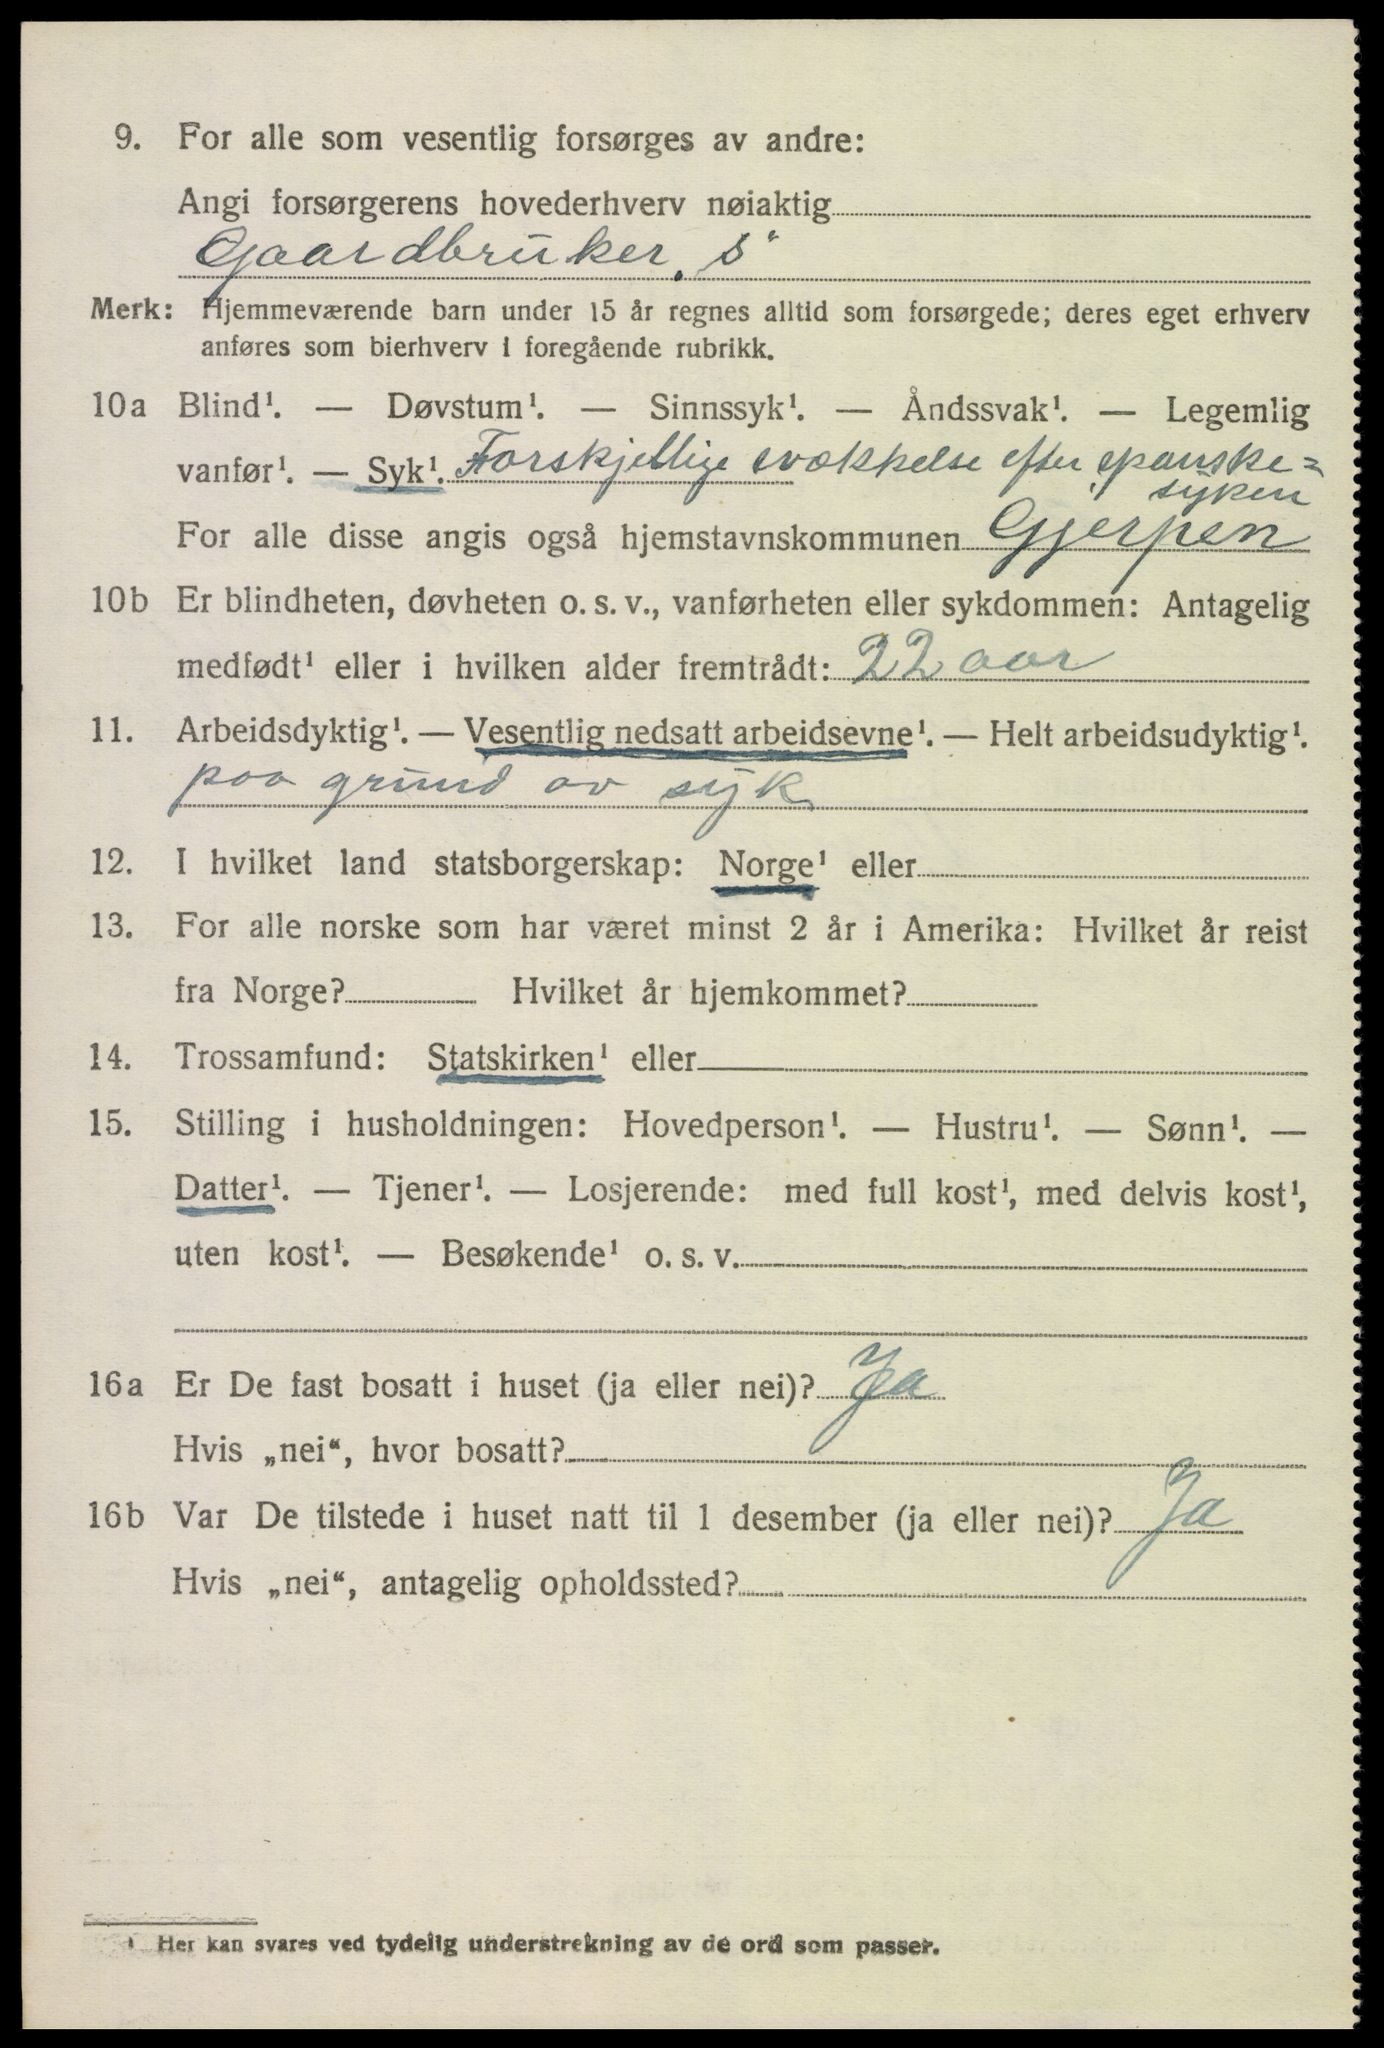 9. For alle som vesentlig forsørges av andre:
Angi forsørgerens hovederhverv nøiaktig
Gaardbruker. S"
Merk: Hjemmeværende barn under 15 år regnes alltid som forsørgede; deres eget erhverv
anføres som bierhverv i foregående rubrikk.
10a Blind¹. — Døvstum¹. — Sinnssyk¹. — Åndssvak¹. — Legemlig
vanfør¹. — Syk¹. Forskjellige svækkelse efter spanske=
syken
For alle disse angis også hjemstavnskommunen Gjerpen
10b Er blindheten, døvheten o. s. v., vanførheten eller sykdommen: Antagelig
medfødt¹ eller i hvilken alder fremtrådt: 22 aar
11. Arbeidsdyktig¹. — Vesentlig nedsatt arbeidsevne¹. — Helt arbeidsudyktig¹.
paa grund av syk
12. I hvilket land statsborgerskap: Norge¹ eller
13. For alle norske som har været minst 2 år i Amerika: Hvilket år reist
fra Norge? Hvilket år hjemkommet?
14. Trossamfund: Statskirken¹ eller
15. Stilling i husholdningen: Hovedperson¹. — Hustru¹. — Sønn¹. —
Datter¹. — Tjener¹. — Losjerende: med full kost¹, med delvis kost¹,
uten kost¹. — Besøkende¹ o. s. v.
16a Er De fast bosatt i huset (ja eller nei)? Ja
Hvis „nei“, hvor bosatt?
16b Var De tilstede i huset natt til 1 desember (ja eller nei)? Ja
Hvis „nei“, antagelig opholdssted?
¹ Her kan svares ved tydelig understrekning av de ord som passer.